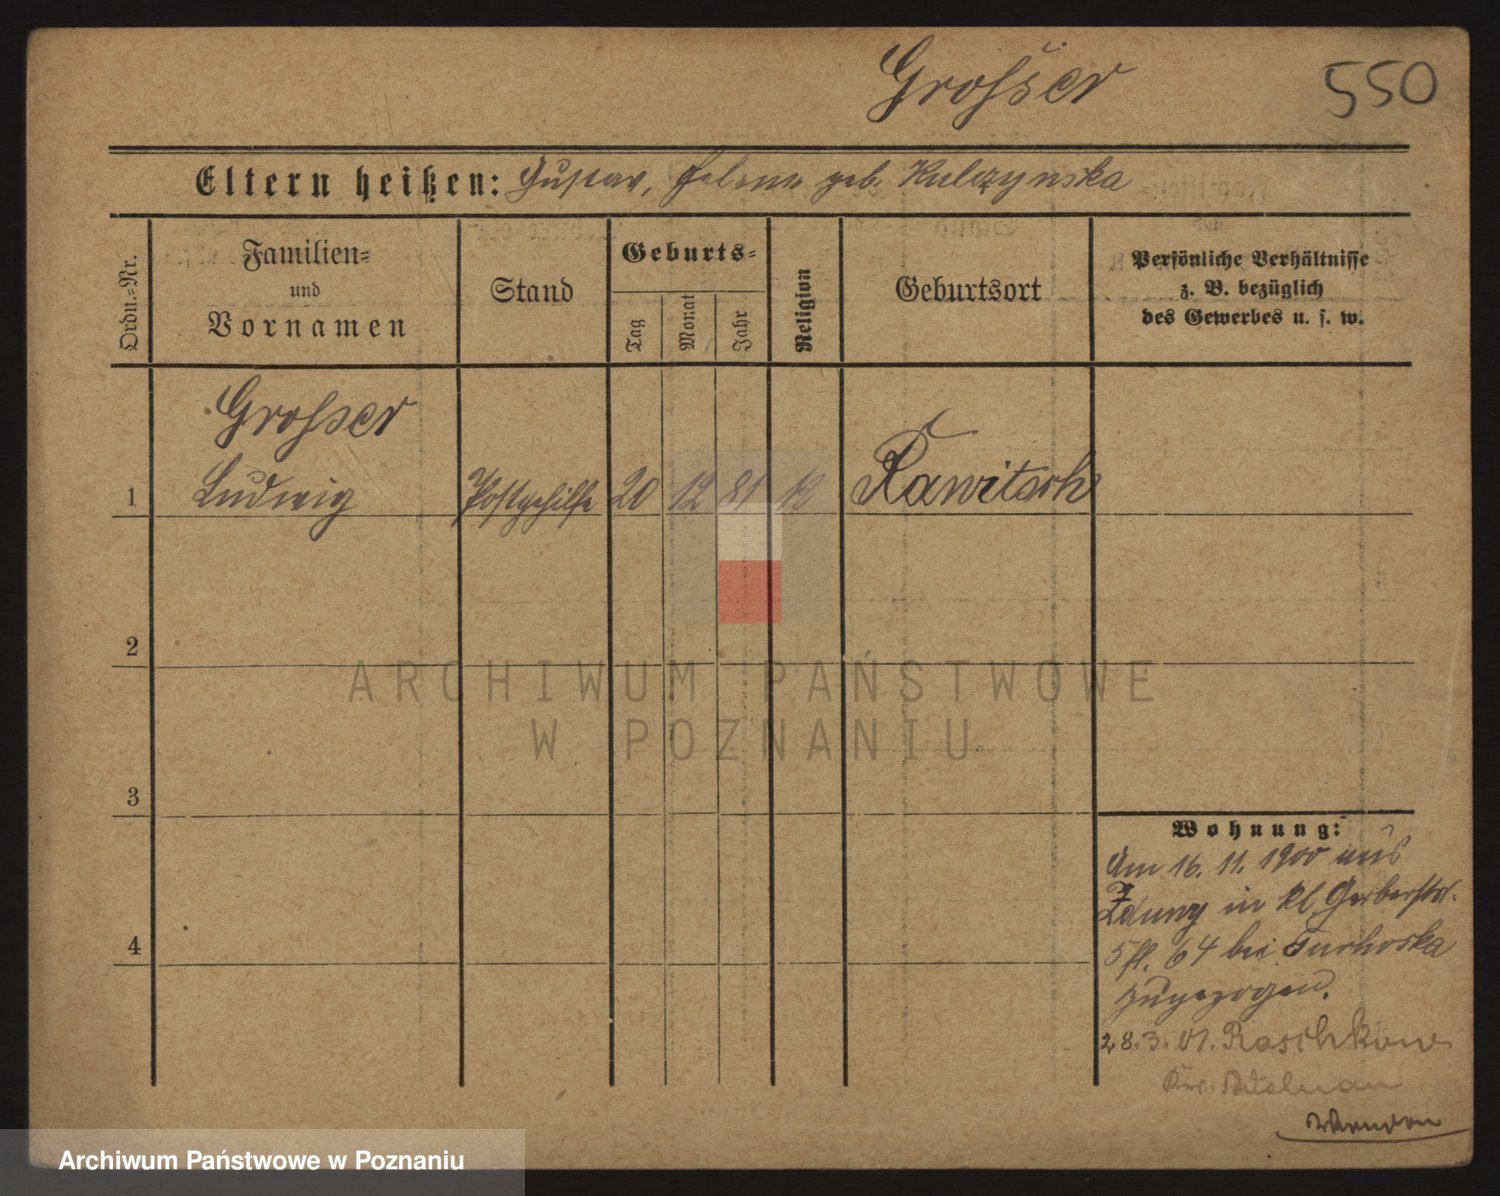 Grosser
550
Eltern heißen: Gustav, Helene geb. Kulczynska
Ordn.=Nr.
Familien=
und
Vornamen
Stand
Geburts=
Tag
Monat
Jahr
Religion
Geburtsort
Persönliche Verhältnisse
z. B. bezüglich
des Gewerbes u. s. w.
Grosser
1 Ludwig Postgehilfe 20 12 81 K Rawitsch
2
ARCHIWUM PAŃSTWOWE
W POZNANIU
3
Wohnung:
Am 16. 11. 1900 aus
Zduny in kl. Gerberstr.
4
64 bei Turhoska
zugezogen.
28.3.01. Raschkow
Kr. Adelnau
Archiwum Państwowe w Poznaniu